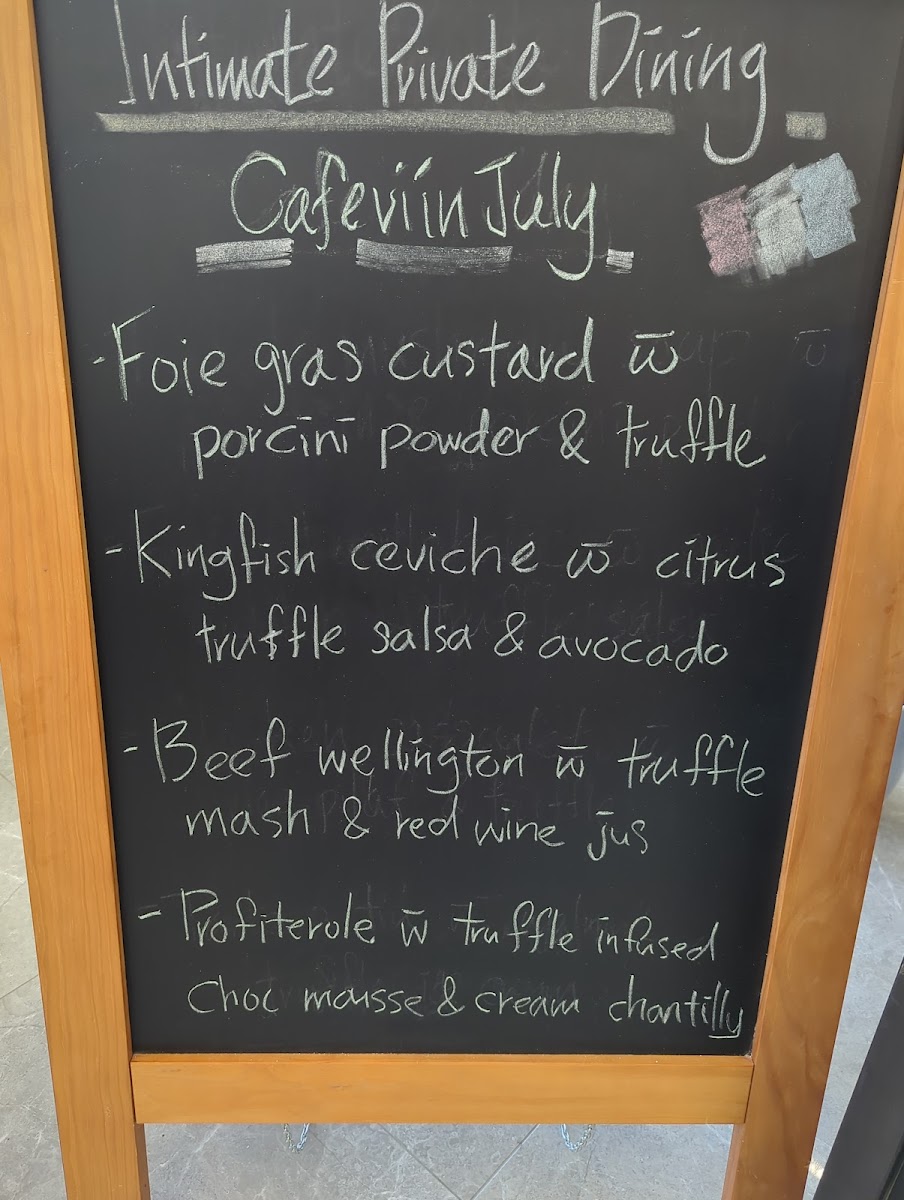 Intimate Private Dining
Cafeviin July
- Foie gras custard w̄
porcini powder & truffle
- Kingfish ceviche w̄ citrus
truffle salsa & avocado
- Beef wellington w̄ truffle
mash & red wine jus
- Profiterole w̄ truffle infused
choc mousse & cream chantilly